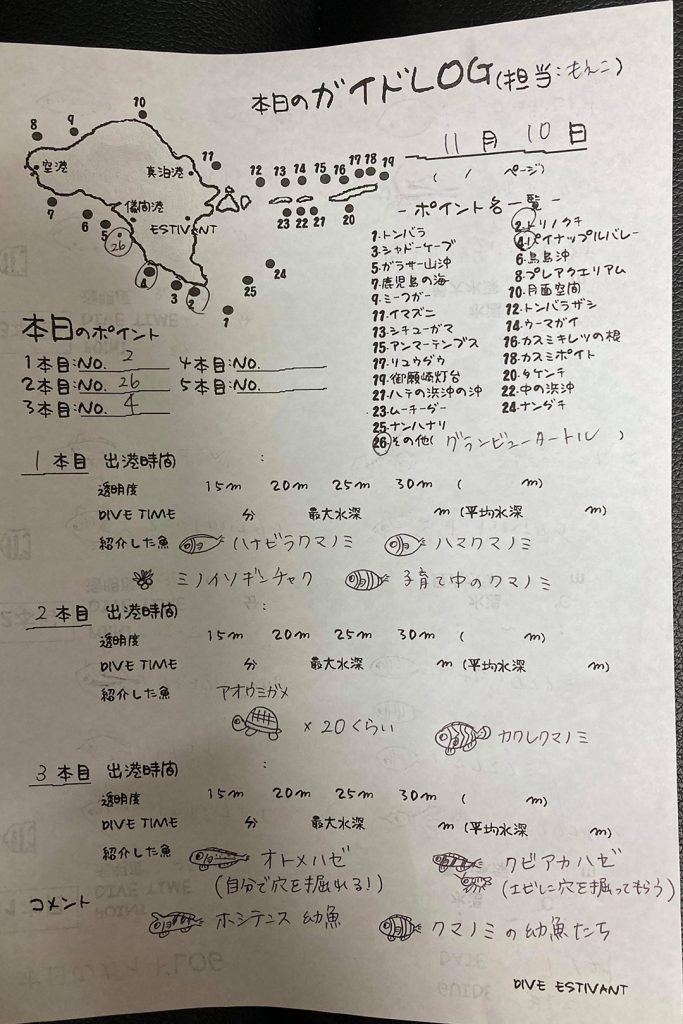 本日のガイドLOG(担当:もえこ)
11月 10日
( / ページ)
10
8
9
空港
真泊港
11
12 13 14 15 16 17 18 19
7
6
儀間港
5
26
ESTIVANT
23 22 21
20
4
3
2
24
25
1
- ポイント名一覧 -
1.トンバラ
2.トリノクチ
3.シャドーケーブ
4.パイナップルバレー
5.ガラサー山沖
6.鳥島沖
7.鹿児島の海
8.プレアクエリアム
9.ミーフガー
10.月面空間
11.イマズニ
12.トンバラザシ
13.シチューガマ
14.ウーマガイ
15.アンマーテンブス
16.カスミキレツの根
17.リュウグウ
18.カスミポイト
19.御願崎灯台
20.タケンチ
21.ハテの浜沖の沖
22.中の浜沖
23.ムーチーグー
24.ナングチ
25.ナンハナリ
26.その他( グランビュータートル )
本日のポイント
1本目:NO. 2
4本目:NO.
2本目:NO. 26
5本目:NO.
3本目:NO. 4
1本目 出港時間 :
透明度 15m 20m 25m 30m ( m)
DIVE TIME 分 最大水深 m (平均水深 m)
紹介した魚 ハナビラクマノミ ハマクマノミ
ミノイソギンチャク 子育て中のクマノミ
2本目 出港時間 :
透明度 15m 20m 25m 30m ( m)
DIVE TIME 分 最大水深 m (平均水深 m)
紹介した魚 アオウミガメ
×20くらい カクレクマノミ
3本目 出港時間 :
透明度 15m 20m 25m 30m ( m)
DIVE TIME 分 最大水深 m (平均水深 m)
紹介した魚 オトメハゼ クビアカハゼ
(自分で穴を掘れる!) (エビに穴を掘ってもらう)
コメント
ホシテンス 幼魚 クマノミの幼魚たち
DIVE ESTIVANT